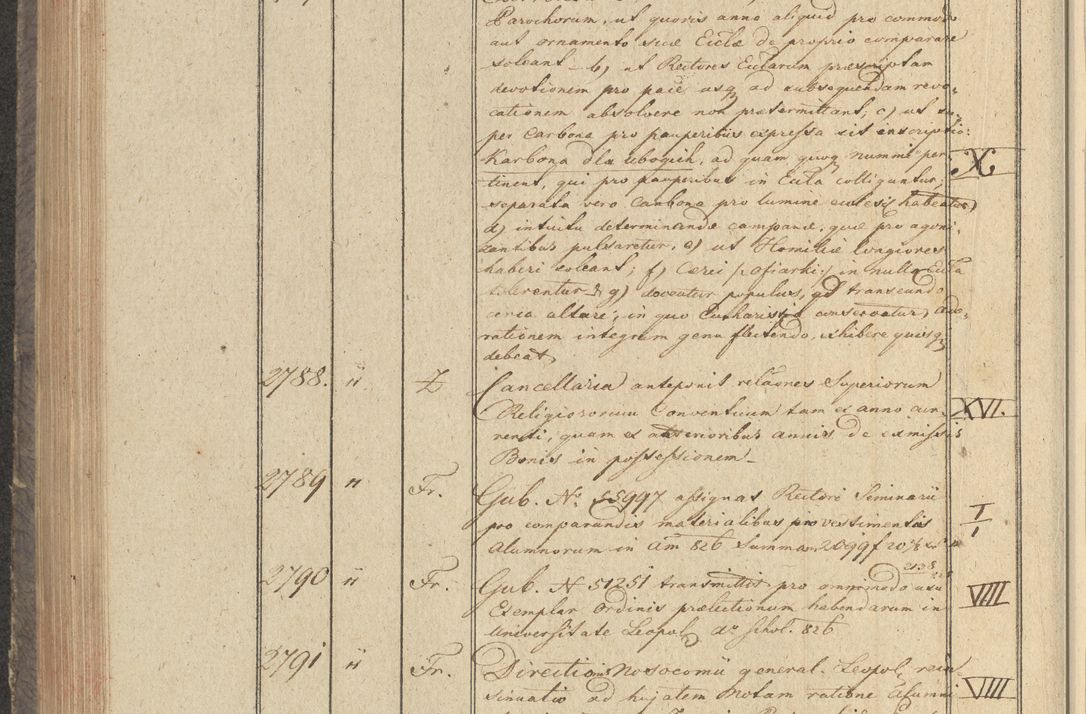 Parochorum, ut quovis anno aliquid pro commodo
aut ornamento suæ Eccłæ de proprio comparare
soleant – b) ut Rectores Ecłarum præscriptam
devotionem pro pace usq ad subsequendam revo-
cationem absolvere non prætermittant; c) ut su-
per Carbona pro pauperibus expressa sit inscriptio:
Karbona dla ubogich, ad quam quoq nummi per- X
tinent, qui pro pauperibus in Ecła colliguntur,
separata vero Carbona pro lumine eclesis habeatur)
d) intuitu determinandæ campanæ, quæ pro agoni-
zantibus pulsaretur, e) ut Homiliæ longiores
haberi soleant; f) Cerei /ofiarki:/ in nulla Ecła
tolerentur & g) doceatur populus, qd transeundo
circa altare, in quo Eucharistia conservatur, ado-
rationem integram genu flectendo, exhibere quisq
debeat.
2788. ıı Z Cancellaria anteponit relaones Superiorum
Religiosorum Conventuum tam ex anno cur- XVI.
renti, quam ex anterioribus annis de exmissis
Bonis in possessionem –
2789 ıı Fr. Gub. No 55997 assignat Rectori Seminarii
pro comparandis materialibus pro vestimentis I/1
Alumnorum in am 826 Summam
2790 ıı Fr. Gub. N 51251 transmittit pro ommimodo usu
Exemplar Ordinis prælectionum habendarum in VIIII
Universitate Leopol, ao schol. 826
2791 ıı Fr. Directio Nosocomii general. Leopol, rein-
sinuatio ad hujatem Notam ratione Alumni VIIII